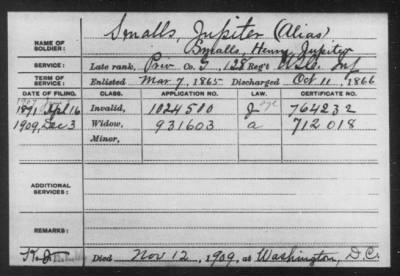 NAME OF SOLDIER: Smalls, Jupiter (Alias)
Smalls, Henry Jupiter
SERVICE: Late rank, Priv Co. G, 128 Reg't U.S.C. Inf
TERM OF SERVICE: Enlisted Mar 7, 1865 Discharged Oct 11, 1866
DATE OF FILING. CLASS. APPLICATION NO. LAW. CERTIFICATE NO.
1891 Apl 16 Invalid, 1024510 J 764232
1909, Dec 3 Widow, 931603 a 712018
Minor,
ADDITIONAL SERVICES:
REMARKS:
Died Nov 12, 1909, at Washington, D.C.